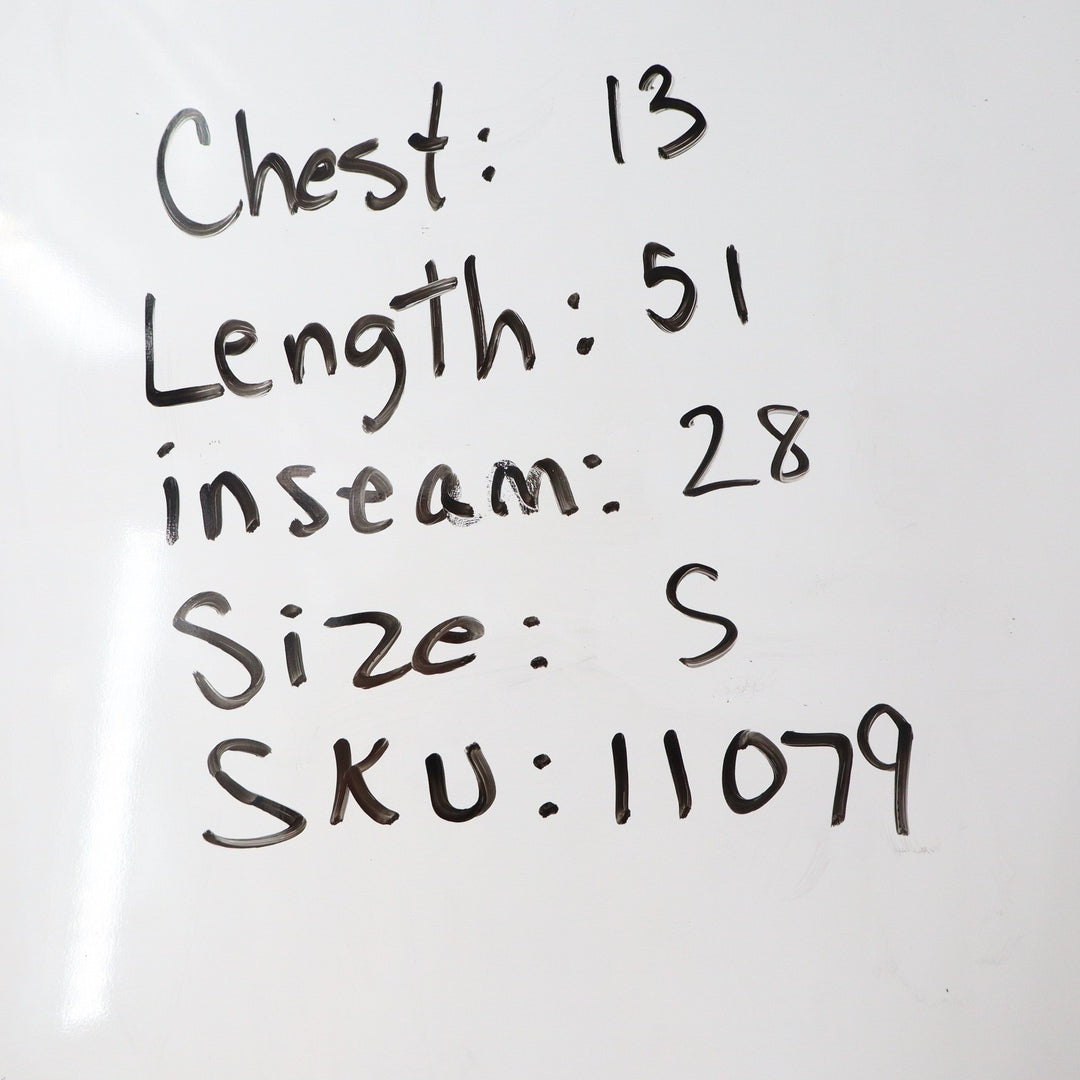 Chest: 13
Length: 51
inseam: 28
Size: S
SKU: 11079